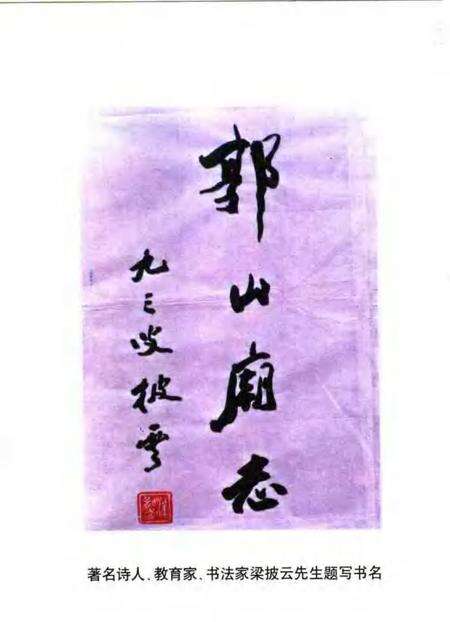 郭山廟志
九三叟披雲
著名诗人、教育家、书法家梁披云先生题写书名